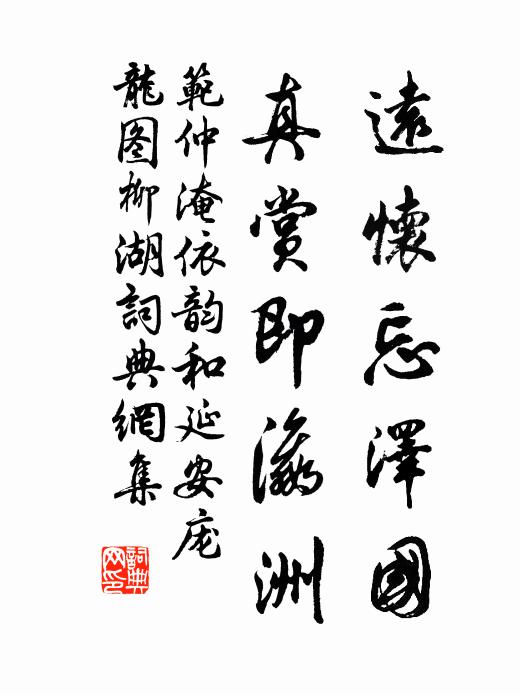 遠懷忘澤國
真賞即瀛洲
範仲淹依韵和延安庞
龍图柳湖詞典網集
詞典网印